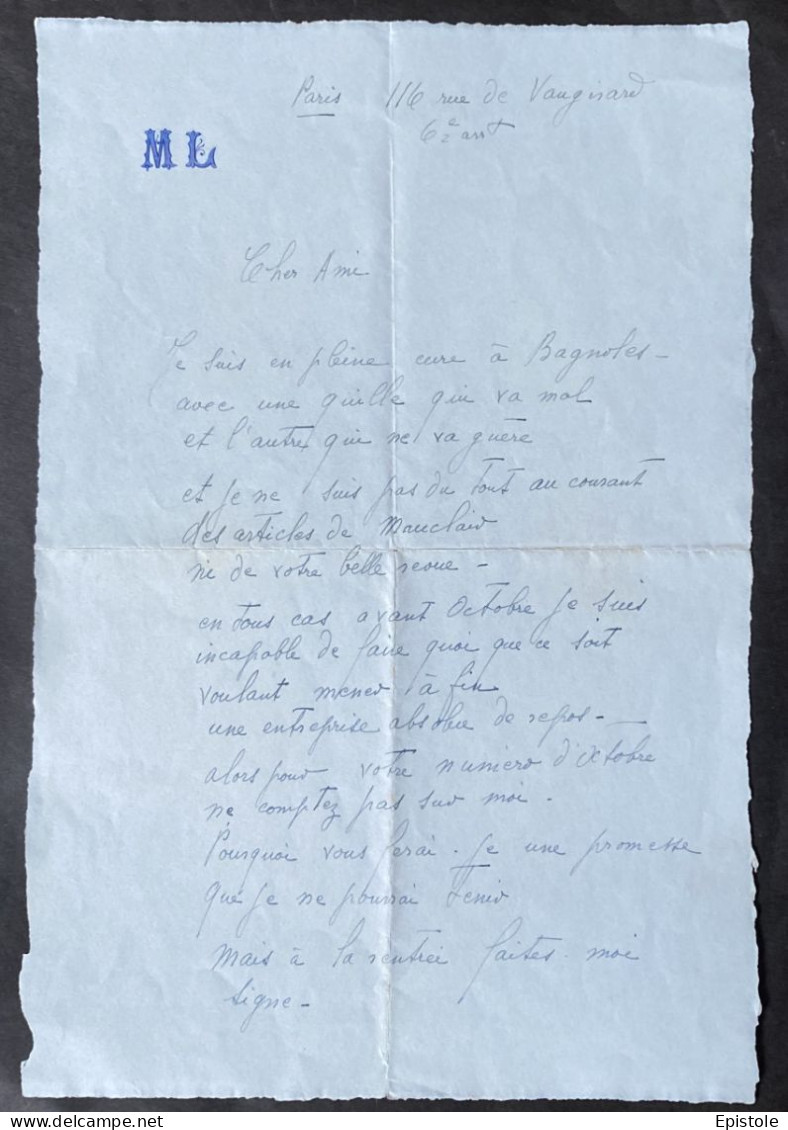 Paris 116 rue de Vaugirard
6e arrt
ML
Cher Ami
Je suis en pleine cure à Bagnoles -
avec une quille qui va mal
et l'autre qui ne va guère
et je ne suis pas du tout au courant
des articles de Mauclair
ni de votre belle revue -
en tous cas avant Octobre je suis
incapable de faire quoi que ce soit
voulant mener à fin
une entreprise absolue de repos -
alors pour votre numero d'Octobre
ne comptez pas sur moi.
Pourquoi vous ferai-je une promesse
que je ne pourrai tenir
Mais à la rentrée faites-moi
signe -
delcampe.net
Epistole